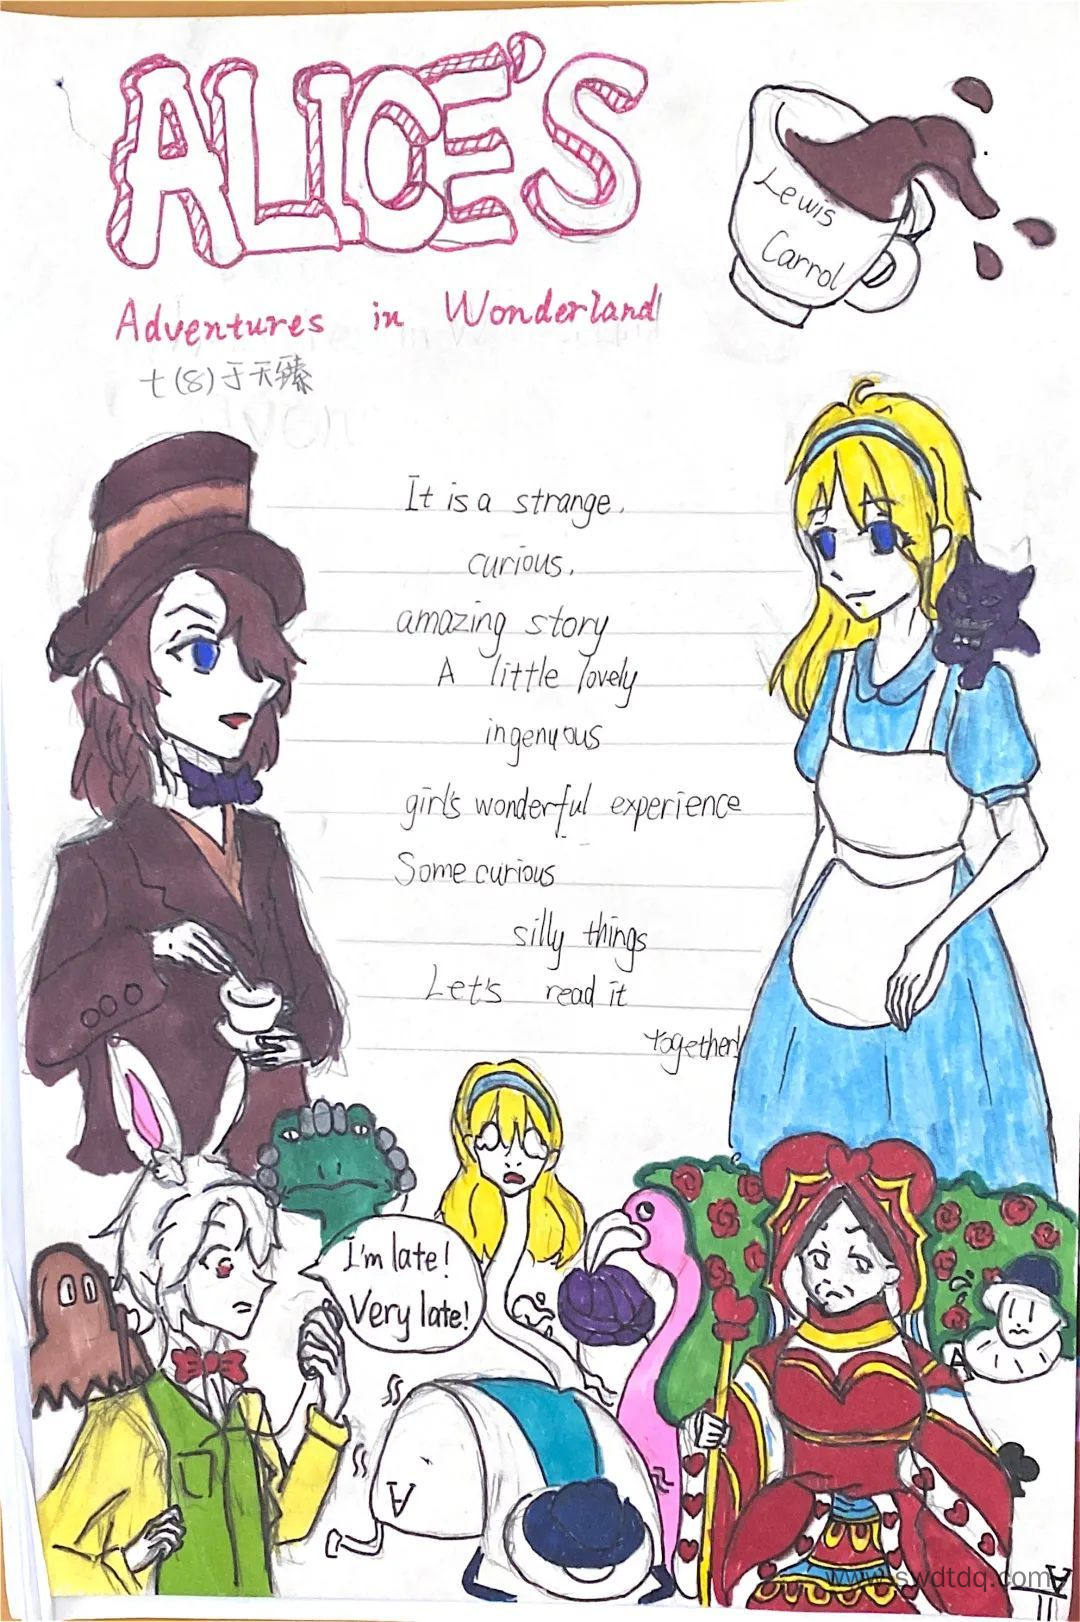 ALICE'S
Adventures in Wonderland
七(8)于天臻
Lewis
Carrol
It is a strange,
curious,
amazing story
A little lovely
ingenuous
girl's wonderful experience
Some curious
silly things
Let's read it
together!
I'm late!
Very late!
A
A
A
www.swdtdq.com